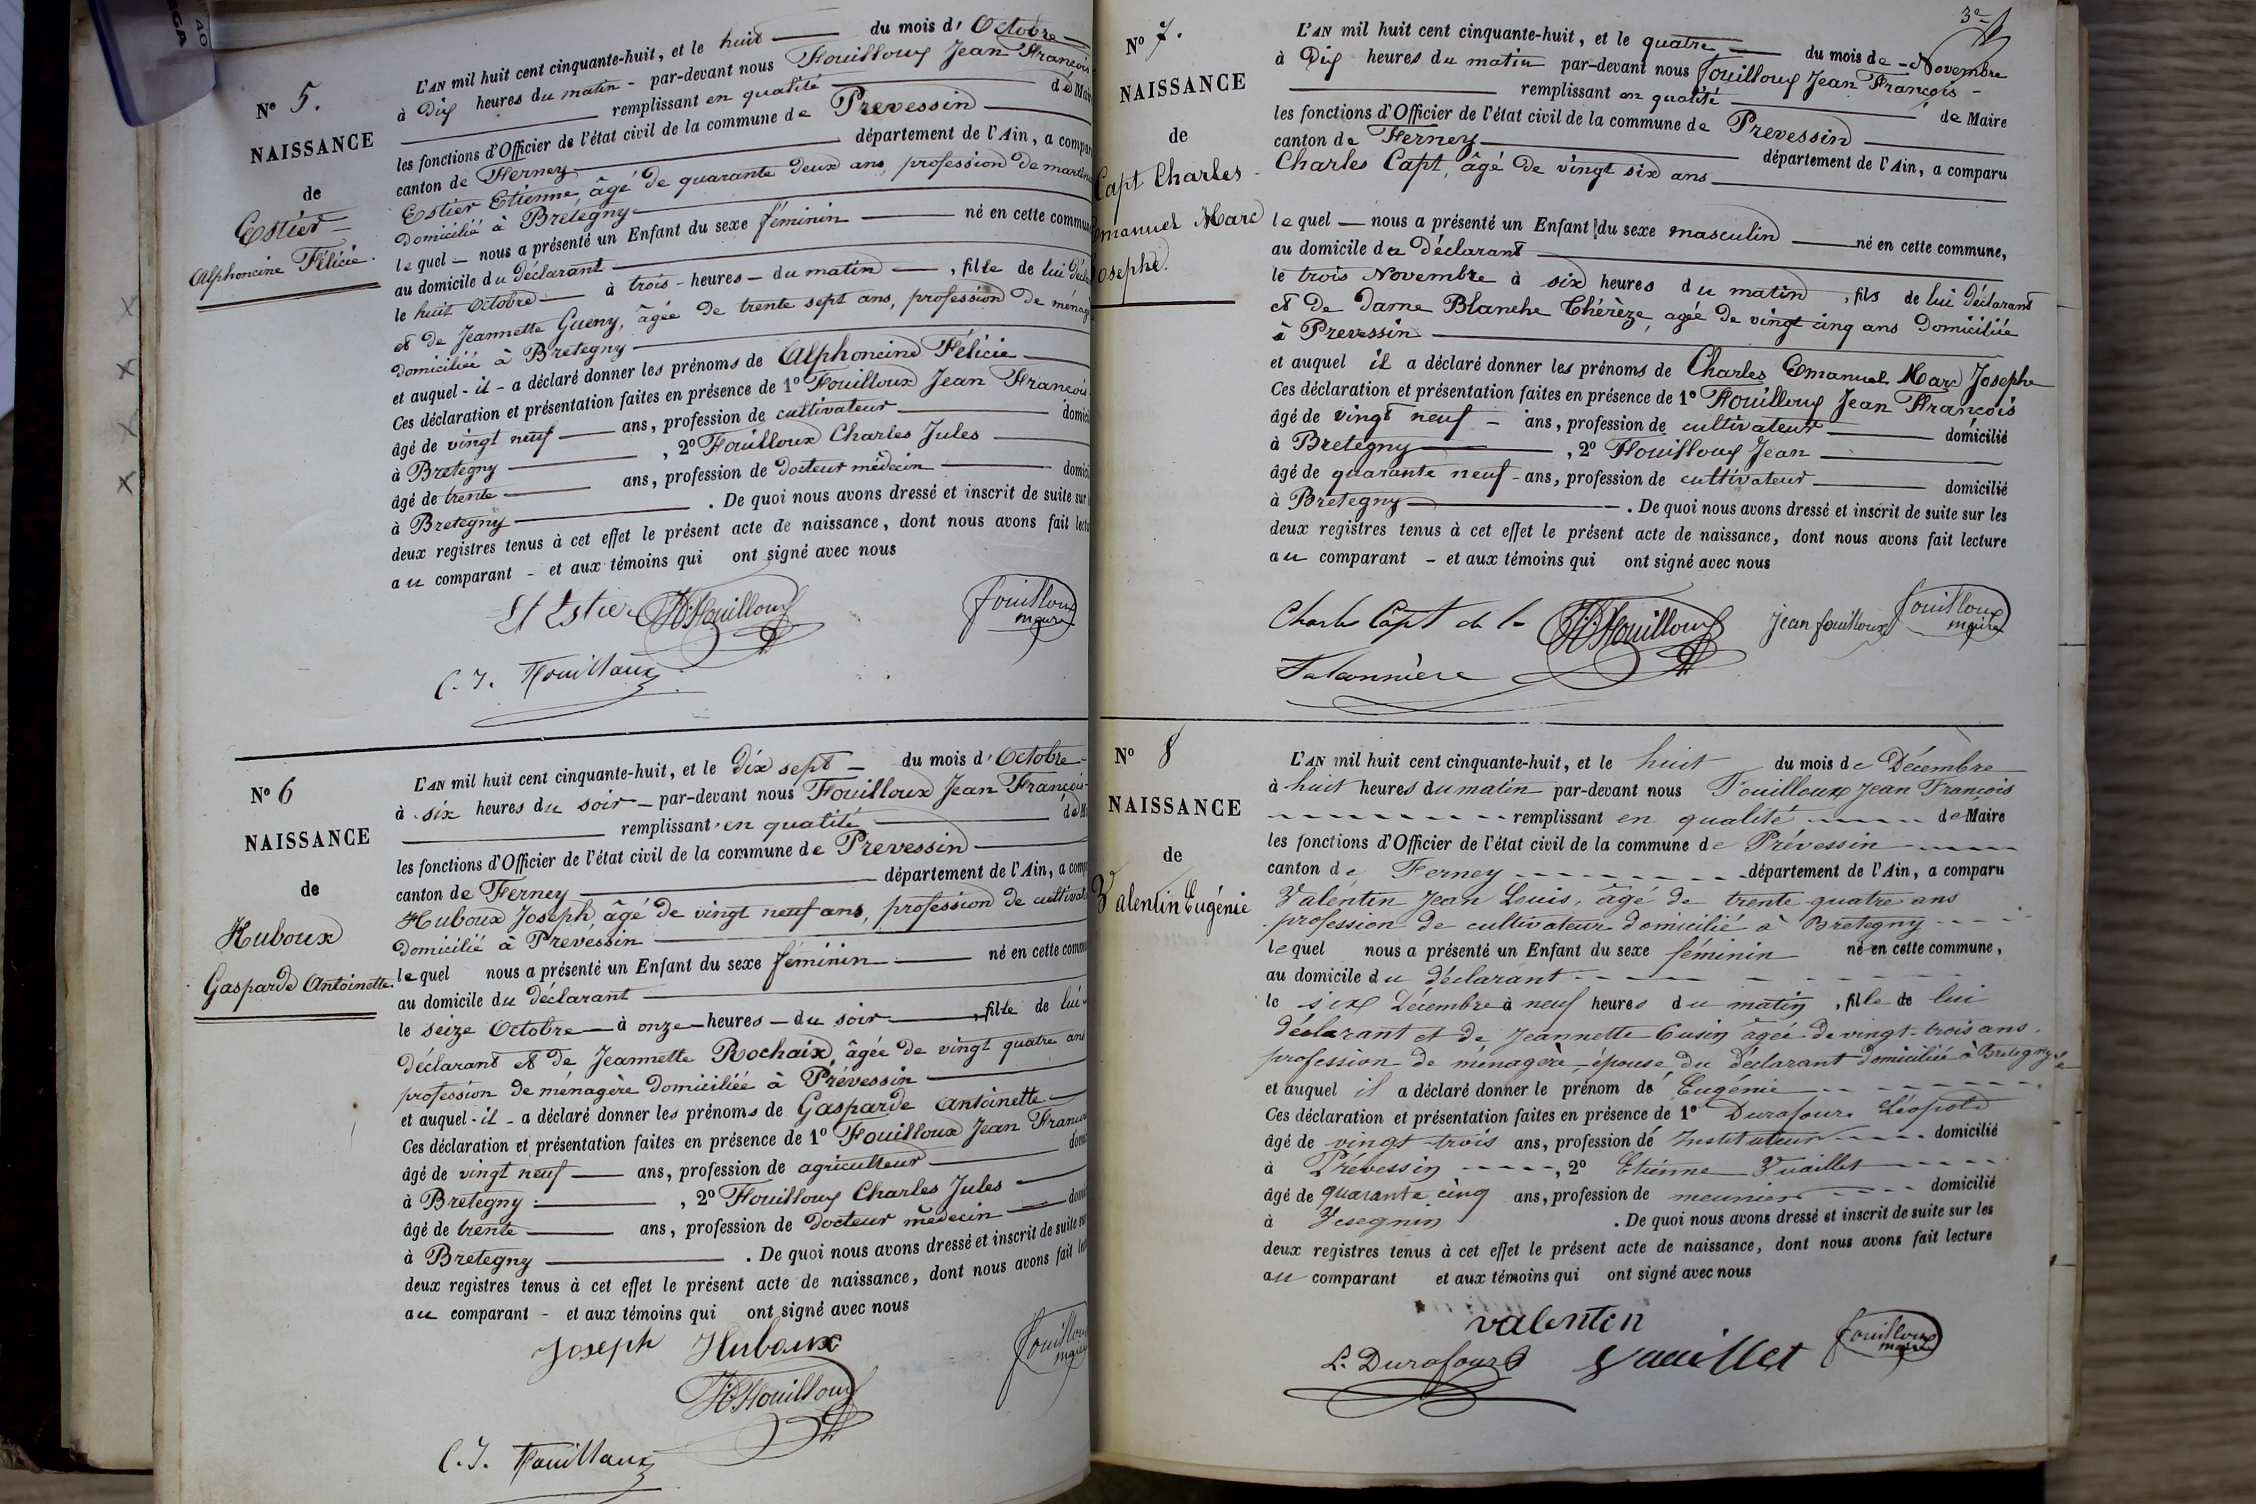 N° 5.
NAISSANCE
de
Estier
Alphoncine Félicie.
L'AN mil huit cent cinquante-huit, et le huit du mois d' Octobre
à Dix heures du matin - par-devant nous Fouilloux Jean François
remplissant en qualité de Maire
les fonctions d'Officier de l'état civil de la commune de Prevessin
canton de Ferney département de l'Ain, a compar
Estier Etienne, âgé de quarante deux ans, profession de
Domicilié à Brétegny
lequel - nous a présenté un Enfant du sexe féminin né en cette commun
au domicile du déclarant
le huit Octobre à trois - heures - du matin , fille de lui décla
et de Jeannette Gueny, âgée de trente sept ans, profession de ménag
domiciliée à Bretegny
et auquel - il - a déclaré donner les prénoms de Alphoncine Félicie
Ces déclaration et présentation faites en présence de 1° Fouilloux Jean François
âgé de vingt neuf ans, profession de cultivateur domici
à Bretegny , 2° Fouilloux Charles Jules
âgé de trente ans, profession de docteur médecin domici
à Bretegny . De quoi nous avons dressé et inscrit de suite sur
deux registres tenus à cet effet le présent acte de naissance, dont nous avons fait lectu
au comparant - et aux témoins qui ont signé avec nous
Et Estier Fouilloux fouilloux maire
C. J. Fouilloux
N° 6
NAISSANCE
de
Huboux
Gasparde Antoinette.
L'AN mil huit cent cinquante-huit, et le dix sept - du mois d' Octobre -
à six heures du soir - par-devant nous Fouilloux Jean François
remplissant en qualité de M
les fonctions d'Officier de l'état civil de la commune de Prevessin
canton de Ferney département de l'Ain, a comp
Huboux Joseph âgé de vingt neuf ans, profession de cultivat
Domicilié à Prévéssin
lequel nous a présenté un Enfant du sexe féminin né en cette commu
au domicile du déclarant
le seize Octobre - à onze - heures - du soir , fille de lui
déclarant et de Jeannette Rochaix, âgée de vingt quatre ans
profession de ménagère domiciliée à Prévessin
et auquel - il - a déclaré donner les prénoms de Gasparde Antoinette
Ces déclaration et présentation faites en présence de 1° Fouilloux Jean Francois
âgé de vingt neuf ans, profession de agriculteur domi
à Bretegny , 2° Fouilloux Charles Jules
âgé de trente ans, profession de docteur médecin domi
à Bretegny . De quoi nous avons dressé et inscrit de suite sur
deux registres tenus à cet effet le présent acte de naissance, dont nous avons fait lec
au comparant - et aux témoins qui ont signé avec nous
Joseph Huboux
Fouilloux fouilloux maire
C. J. Fouilloux
3e
N° 7.
NAISSANCE
de
Capt Charles
Emanuel Marc
Josephe.
L'AN mil huit cent cinquante-huit, et le quatre du mois de Novembre
à Dix heures du matin par-devant nous Fouilloux Jean François -
remplissant en qualité de Maire
les fonctions d'Officier de l'état civil de la commune de Prevessin
canton de Ferney département de l'Ain, a comparu
Charles Capt, âgé de vingt six ans
lequel - nous a présenté un Enfant du sexe masculin né en cette commune,
au domicile du déclarant
le trois Novembre à six heures du matin , fils de lui déclarant
et de Dame Blanche Thérèze, agée de vingt cinq ans domiciliée
à Prevessin
et auquel il a déclaré donner les prénoms de Charles Emanuel Marc Josephe
Ces déclaration et présentation faites en présence de 1° Fouilloux Jean François
âgé de vingt neuf - ans, profession de cultivateur domicilié
à Bretegny , 2° Fouilloux Jean
âgé de quarante neuf - ans, profession de cultivateur domicilié
à Bretegny . De quoi nous avons dressé et inscrit de suite sur les
deux registres tenus à cet effet le présent acte de naissance, dont nous avons fait lecture
au comparant - et aux témoins qui ont signé avec nous
Charles Capt de la Fouilloux Jean fouilloux fouilloux maire
N° 8
NAISSANCE
de
Valentin Eugénie
L'AN mil huit cent cinquante-huit, et le huit du mois de Décembre
à huit heures du matin par-devant nous Fouilloux Jean François
remplissant en qualité de Maire
les fonctions d'Officier de l'état civil de la commune de Prévessin
canton de Ferney département de l'Ain, a comparu
Valentin Jean Louis, âgé de trente quatre ans
profession de cultivateur domicilié à Bretegny
lequel nous a présenté un Enfant du sexe féminin né en cette commune,
au domicile du déclarant
le six Décembre à neuf heures du matin , fille de lui
déclarant et de Jeannette Cusin âgée de vingt-trois ans.
profession de ménagère, épouse du déclarant domiciliée à Bretegny
et auquel il a déclaré donner le prénom de Eugénie
Ces déclaration et présentation faites en présence de 1° Durafour Léopold
âgé de vingt-trois ans, profession de Instituteur domicilié
à Prévessin , 2° Etienne Vuaillet
âgé de quarante cinq ans, profession de meunier domicilié
à Vesegnin . De quoi nous avons dressé et inscrit de suite sur les
deux registres tenus à cet effet le présent acte de naissance, dont nous avons fait lecture
au comparant et aux témoins qui ont signé avec nous
valentin
L. Durafour Vuaillet fouilloux maire